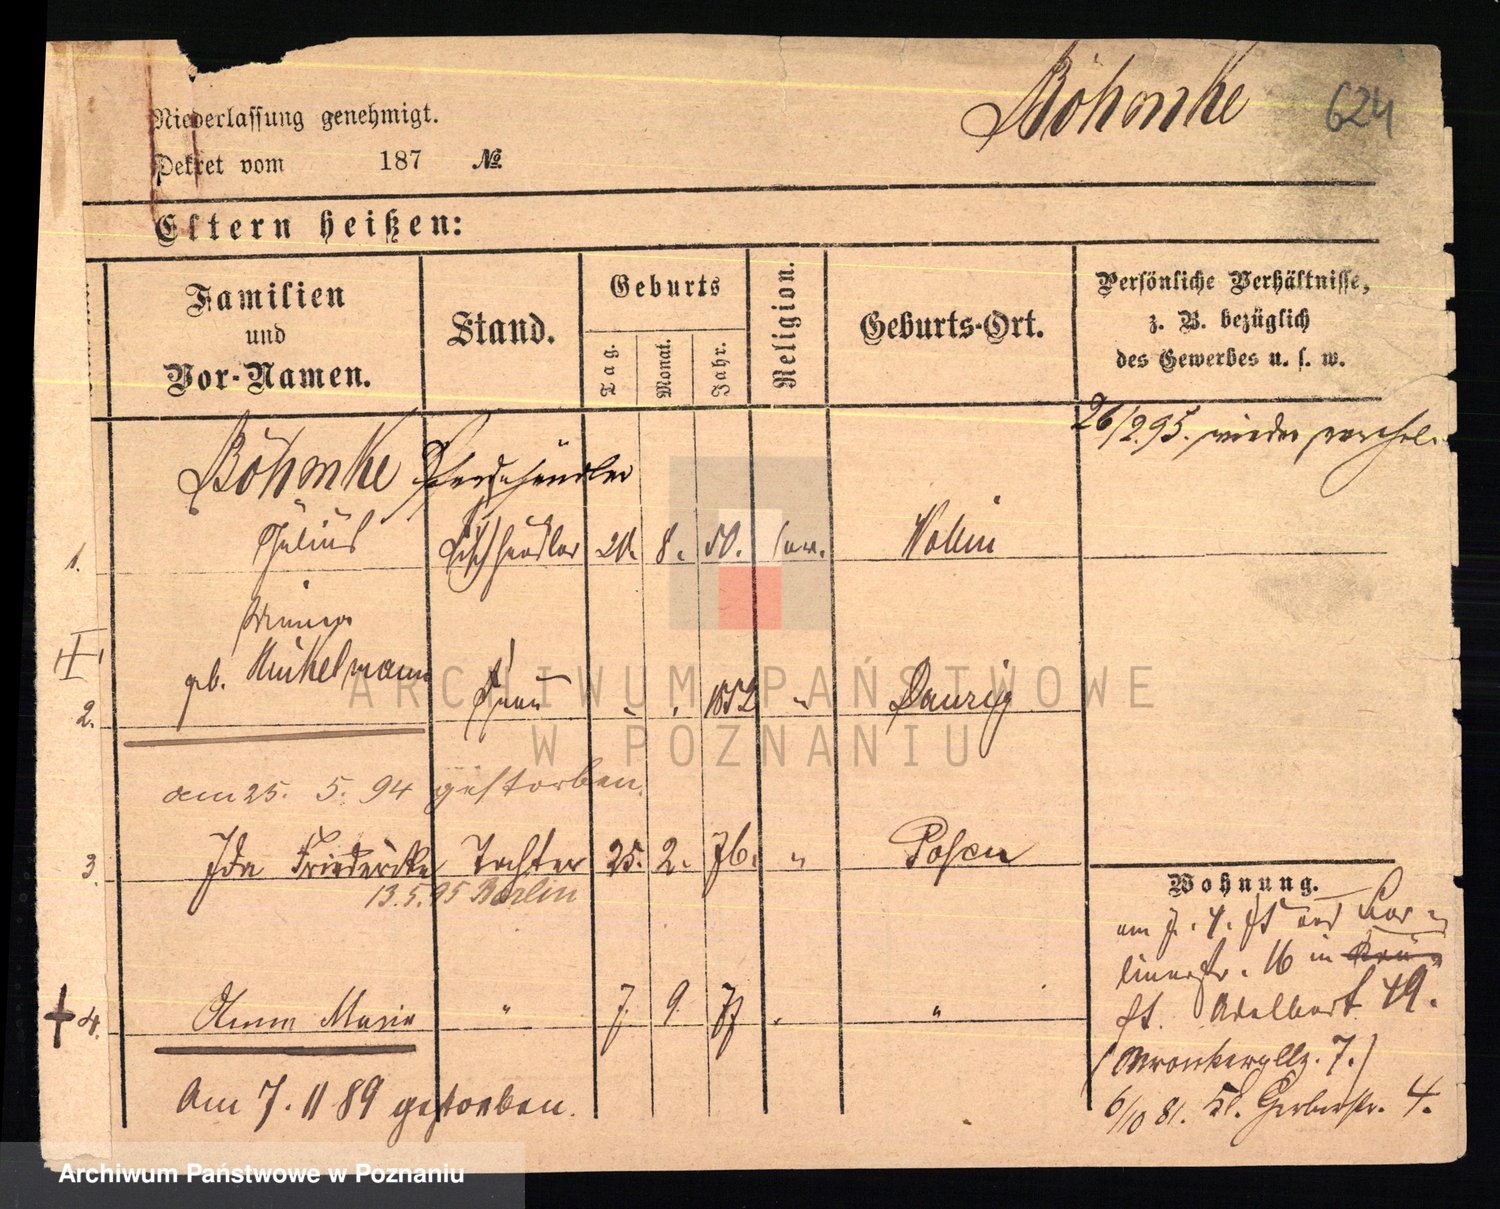 Böhmke 624
Niederlassung genehmigt.
Dekret vom 187 №
Eltern heißen:
Familien
und
Vor-Namen.
Stand.
Geburts
Tag.
Monat.
Jahr.
Religion.
Geburts-Ort.
Persönliche Verhältnisse,
z. B. bezüglich
des Gewerbes u. s. w.
26/2.95. wieder
Böhmke Pferdehändler
1. Julius 8. 50. Wollin
geb. Winkelmann
2. Frau 1852 " Danzig
am 25. 5. 94 gestorben.
3. Ida Friedericke Tochter 25. 2. 76. " Posen
13.5.95 Berlin
Wohnung.
16 in
4. Anna Maria " 7. 9. 77 "
St. Adalbert 49.
(Wronkerpltz. 7.)
Am 7. 11 89 gestorben.
6/10 81. Kl. Gerberstr. 4.
ARCHIWUM PAŃSTWOWE
W POZNANIU
Archiwum Państwowe w Poznaniu